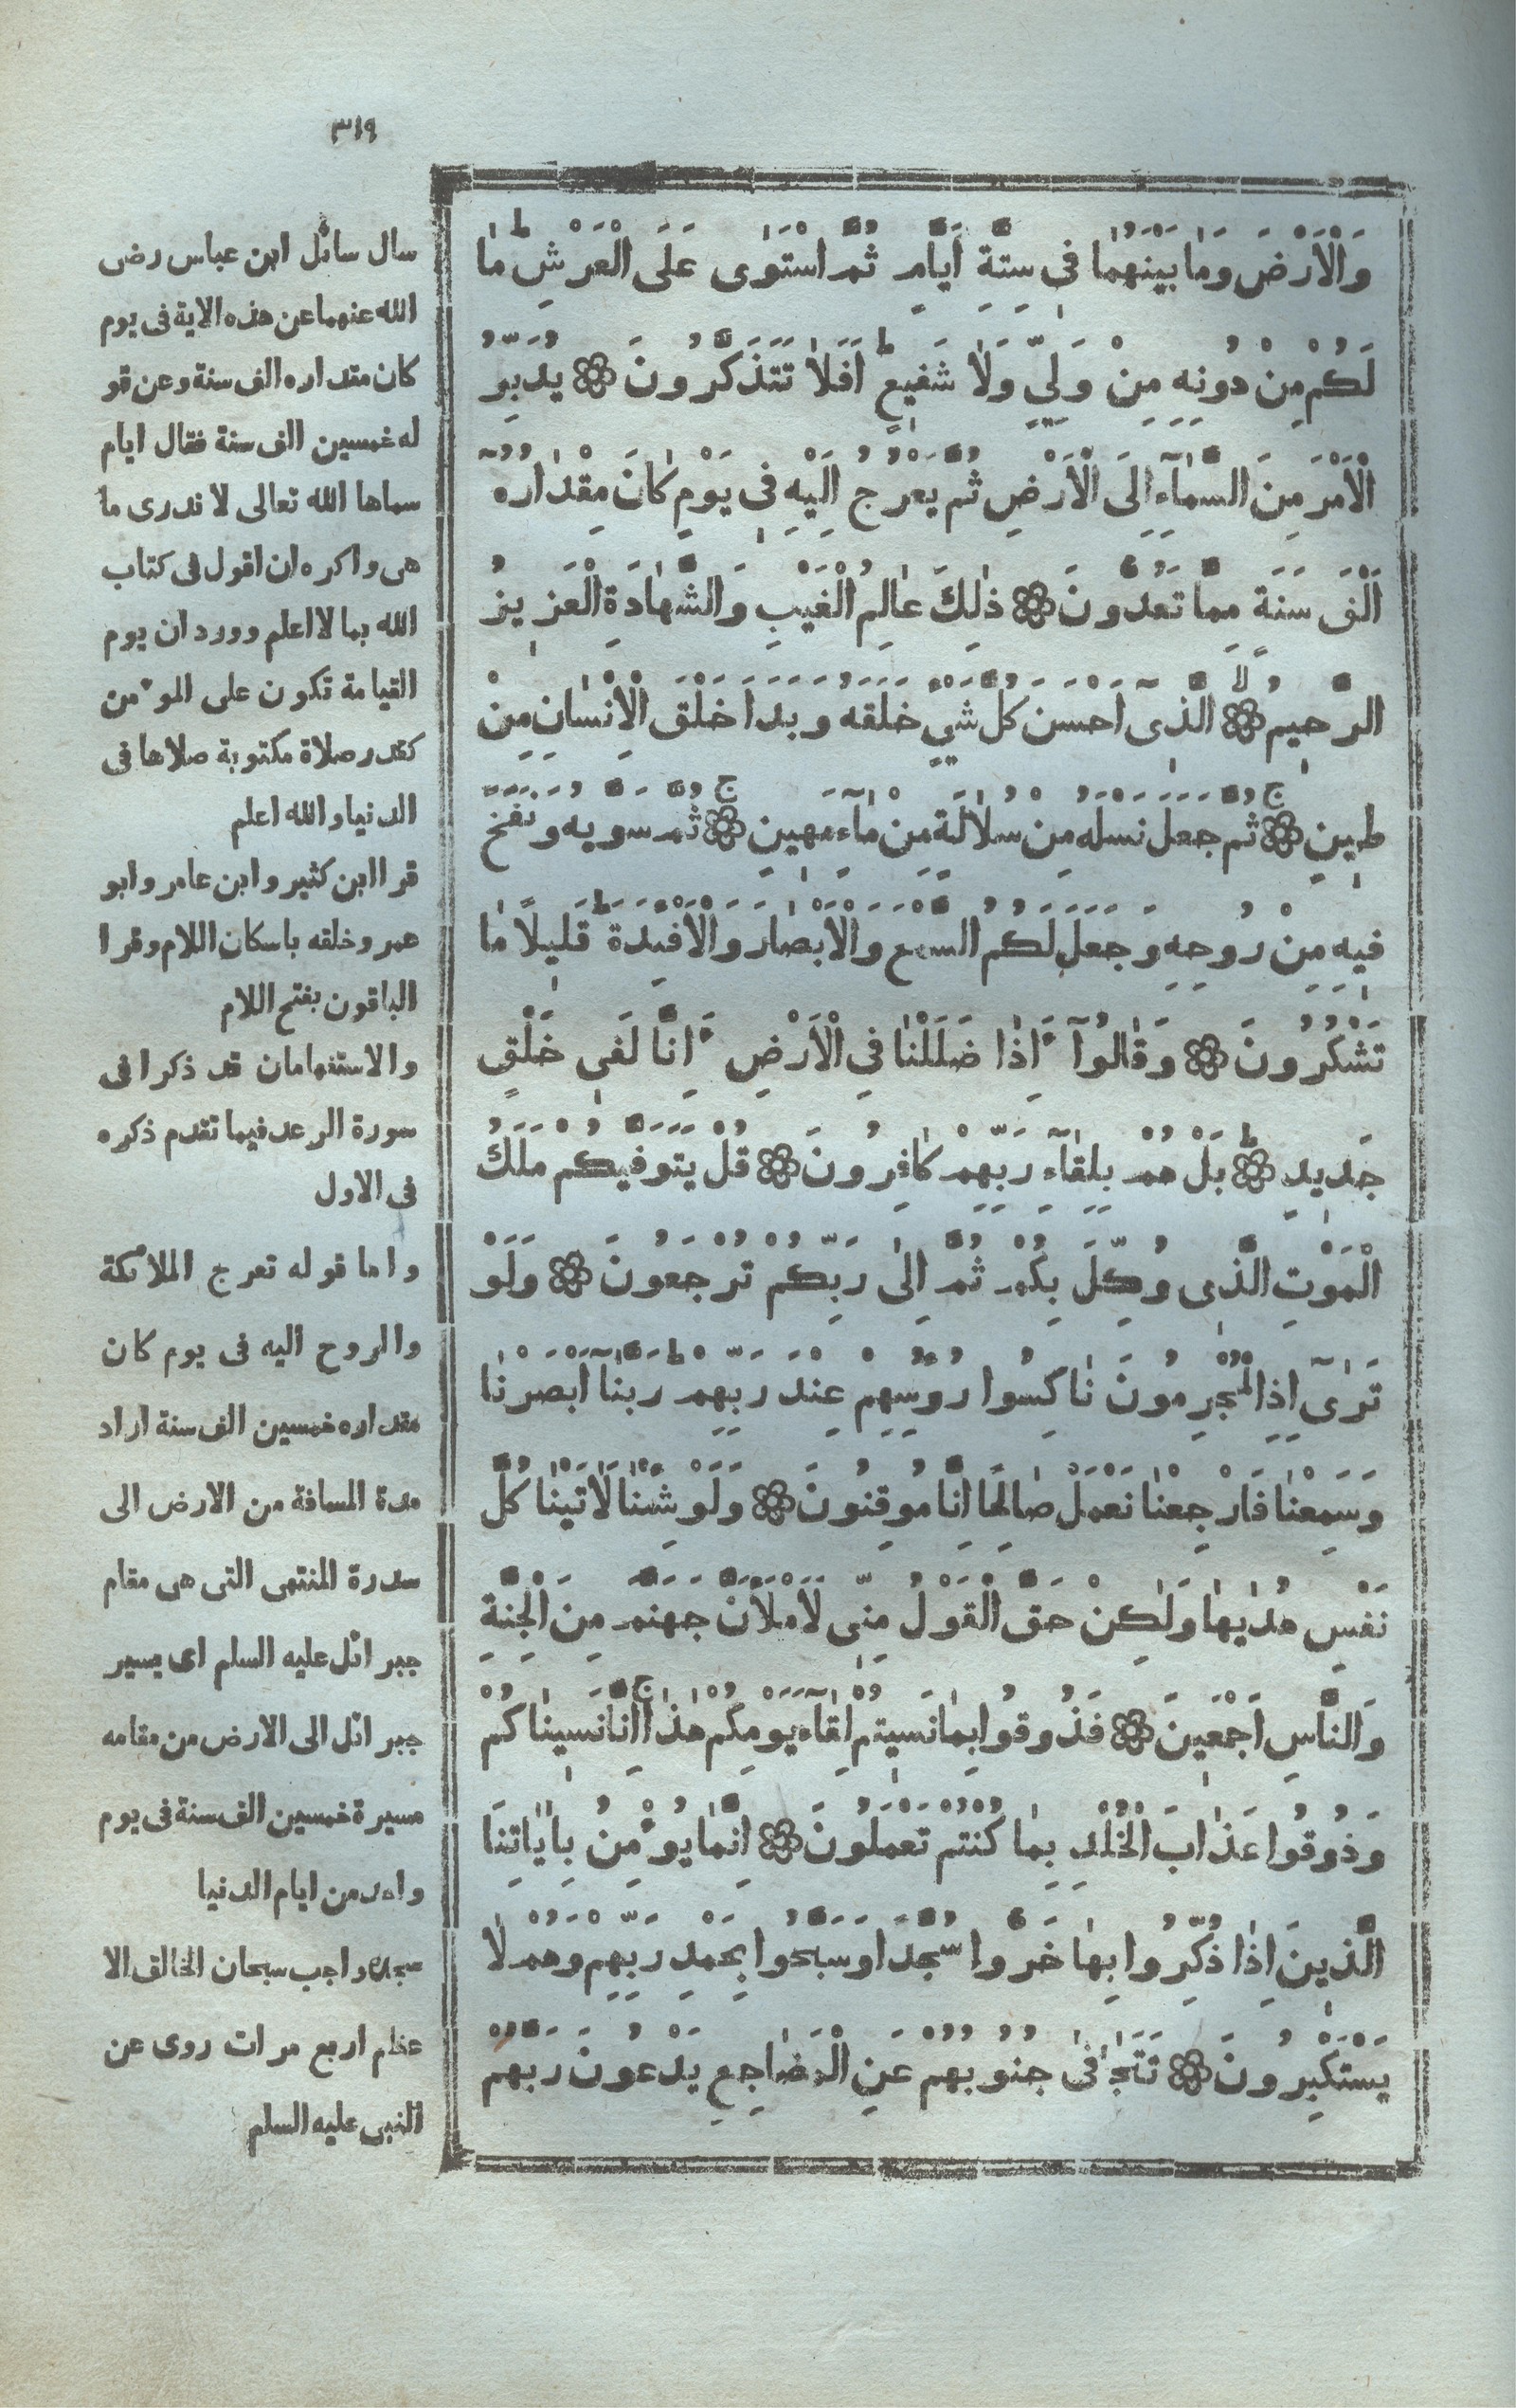 ٣١٩
وَالْاَرْضَ وَمٰا بَيْنَهُمٰا فٖى سِتَّةِ اَيّٰامٍ ثُمَّ اسْتَوٰى عَلَى الْعَرْشِ ط مٰا
لَكُمْ مِنْ دُونِهِ مِنْ وَلِىٍّ وَلٰا شَفٖيعٍ ط اَفَلٰا تَتَذَكَّرُونَ ۞ يُدَبِّرُ
الْاَمْرَ مِنَ السَّمٰآءِ اِلَى الْاَرْضِ ثُمَّ يَعْرُجُ اِلَيْهِ فٖى يَوْمٍ كٰانَ مِقْدٰارُهُٓ
اَلْفَ سَنَةٍ مِمّٰا تَعُدُّونَ ۞ ذٰلِكَ عٰالِمُ الْغَيْبِ وَالشَّهٰادَةِ الْعَزٖيزُ
الرَّحٖيمُ ۞ لا الَّذٖىٓ اَحْسَنَ كُلَّ شَىْءٍ خَلَقَهُ وَبَدَاَ خَلْقَ الْاِنْسٰانِ مِنْ
طٖينٍ ۞ ج ثُمَّ جَعَلَ نَسْلَهُ مِنْ سُلٰالَةٍ مِنْ مٰآءٍ مَهٖينٍ ۞ ج ثُمَّ سَوّٰيهُ وَنَفَخَ
فٖيهِ مِنْ رُوحِهِ وَجَعَلَ لَكُمُ السَّمْعَ وَالْاَبْصٰارَ وَالْاَفْـِٔدَةَ ط قَلٖيلًا مٰا
تَشْكُرُونَ ۞ وَقٰالُوٓا ءَاِذٰا ضَلَلْنٰا فِى الْاَرْضِ ءَاِنّٰا لَفٖى خَلْقٍ
جَدٖيدٍ ۞ ط بَلْ هُمْ بِلِقٰآءِ رَبِّهِمْ كٰافِرُونَ ۞ قُلْ يَتَوَفّٰيكُمْ مَلَكُ
الْمَوْتِ الَّذٖى وُكِّلَ بِكُمْ ثُمَّ اِلٰى رَبِّكُمْ تُرْجَعُونَ ۞ وَلَوْ
تَرٰىٓ اِذِ الْمُجْرِمُونَ نٰاكِسُوا رُؤُسِهِمْ عِنْدَ رَبِّهِمْ ط رَبَّنٰآ اَبْصَرْنٰا
وَسَمِعْنٰا فَارْجِعْنٰا نَعْمَلْ صٰالِحًا اِنّٰا مُوقِنُونَ ۞ وَلَوْ شِئْنٰا لَاٰتَيْنٰا كُلَّ
نَفْسٍ هُدٰيهٰا وَلٰكِنْ حَقَّ الْقَوْلُ مِنّٖى لَاَمْلَاَنَّ جَهَنَّمَ مِنَ الْجِنَّةِ
وَالنّٰاسِ اَجْمَعٖينَ ۞ فَذُوقُوا بِمٰا نَسٖيتُمْ لِقٰآءَ يَوْمِكُمْ هٰذٰا ج اِنّٰا نَسٖينٰاكُمْ
وَذُوقُوا عَذٰابَ الْخُلْدِ بِمٰا كُنْتُمْ تَعْمَلُونَ ۞ اِنَّمٰا يُؤْمِنُ بِاٰيٰاتِنَا
الَّذٖينَ اِذٰا ذُكِّرُوا بِهٰا خَرُّوا سُجَّدًا وَسَبَّحُوا بِحَمْدِ رَبِّهِمْ وَهُمْ لٰا
يَسْتَكْبِرُونَ ۞ تَتَجٰافٰى جُنُوبُهُمْ عَنِ الْمَضٰاجِعِ يَدْعُونَ رَبَّهُمْ
سال سائل ابن عباس رضى
الله عنهما عن هذه الاية فى يوم
كان مقداره الف سنة وعن قو
له خمسين الف سنة فقال ايام
سماها الله تعالى لا ندرى ما
هى واكره ان اقول فى كتاب
الله بما لا اعلم وورد ان يوم
القيامة تكون على المؤمن
كقدر صلاة مكتوبة صلاها فى
الدنيا والله اعلم
قرا ابن كثير وابن عامر وابو
عمرو خلقه باسكان اللام وقرا
الباقون بفتح اللام
والاستفهامان قد ذكرا فى
سورة الرعد فيما تقدم ذكره
فى الاول
واما قوله تعرج الملائكة
والروح اليه فى يوم كان
مقداره خمسين الف سنة اراد
مدة المسافة من الارض الى
سدرة المنتهى التى هى مقام
جبرائل عليه السلم اى يسير
جبرائل الى الارض من مقامه
مسيرة خمسين الف سنة فى يوم
واحد من ايام الدنيا
سجده واجب سبحان الخالق الا
عظم اربع مرات روى عن
النبى عليه السلم